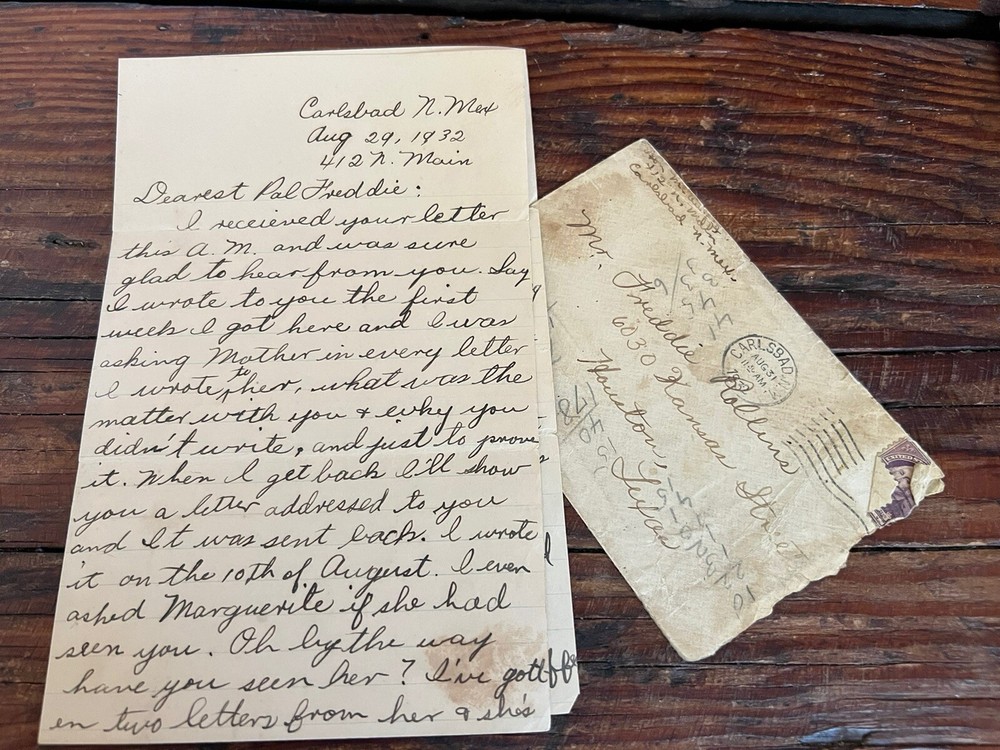 Carlsbad N. Mex
Aug 29, 1932
412 N. Main
Dearest Pal Freddie:
I receieved your letter
this A. M. and was sure
glad to hear from you. Say
I wrote to you the first
week I got here and I was
asking Mother in every letter
I wrote to her, what was the
matter with you & why you
didn't write, and just to prove
it. When I get back I'll show
you a letter addressed to you
and It was sent back. I wrote
it on the 10th of August. I even
asked Marguerite if she had
seen you. Oh by the way
have you seen her? I've gott
en two letters from her & she's
Carlsbad N. Mex.
Mr. Freddie Rollins
6030 Kansas Street
Houston, Texas
CARLSBAD
AUG 31
1932